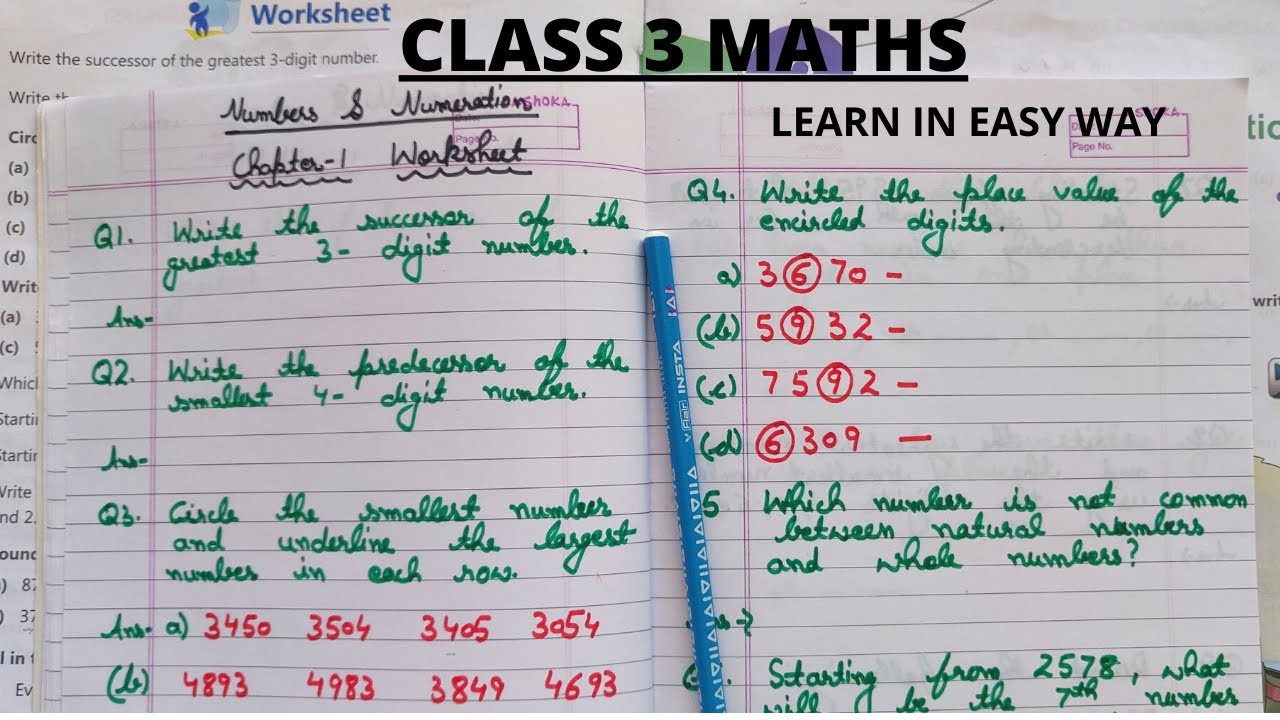 Worksheet
Write the successor of the greatest 3-digit number.
CLASS 3 MATHS
LEARN IN EASY WAY
Numbers & Numeration
Chapter-1 Worksheet
Q1. Write the successor of the
greatest 3- digit number.
Ans-
Q2. Write the predecessor of the
smallest 4- digit number.
Ans-
Q3. Circle the smallest number
and underline the largest
number in each row.
Ans- a) 3450 3504 3405 3054
(b) 4893 4983 3849 4693
SHOKA
Page No.
Q4. Write the place value of the
encircled digits.
a) 3670 -
(b) 5932 -
(c) 7592 -
(d) 6309 -
5 Which number is not common
between natural numbers
and whole numbers?
Starting from 2578, what
will be the 7th number
Flair INSTA
(a)
(b)
(c)
(d)
(a)
(c)